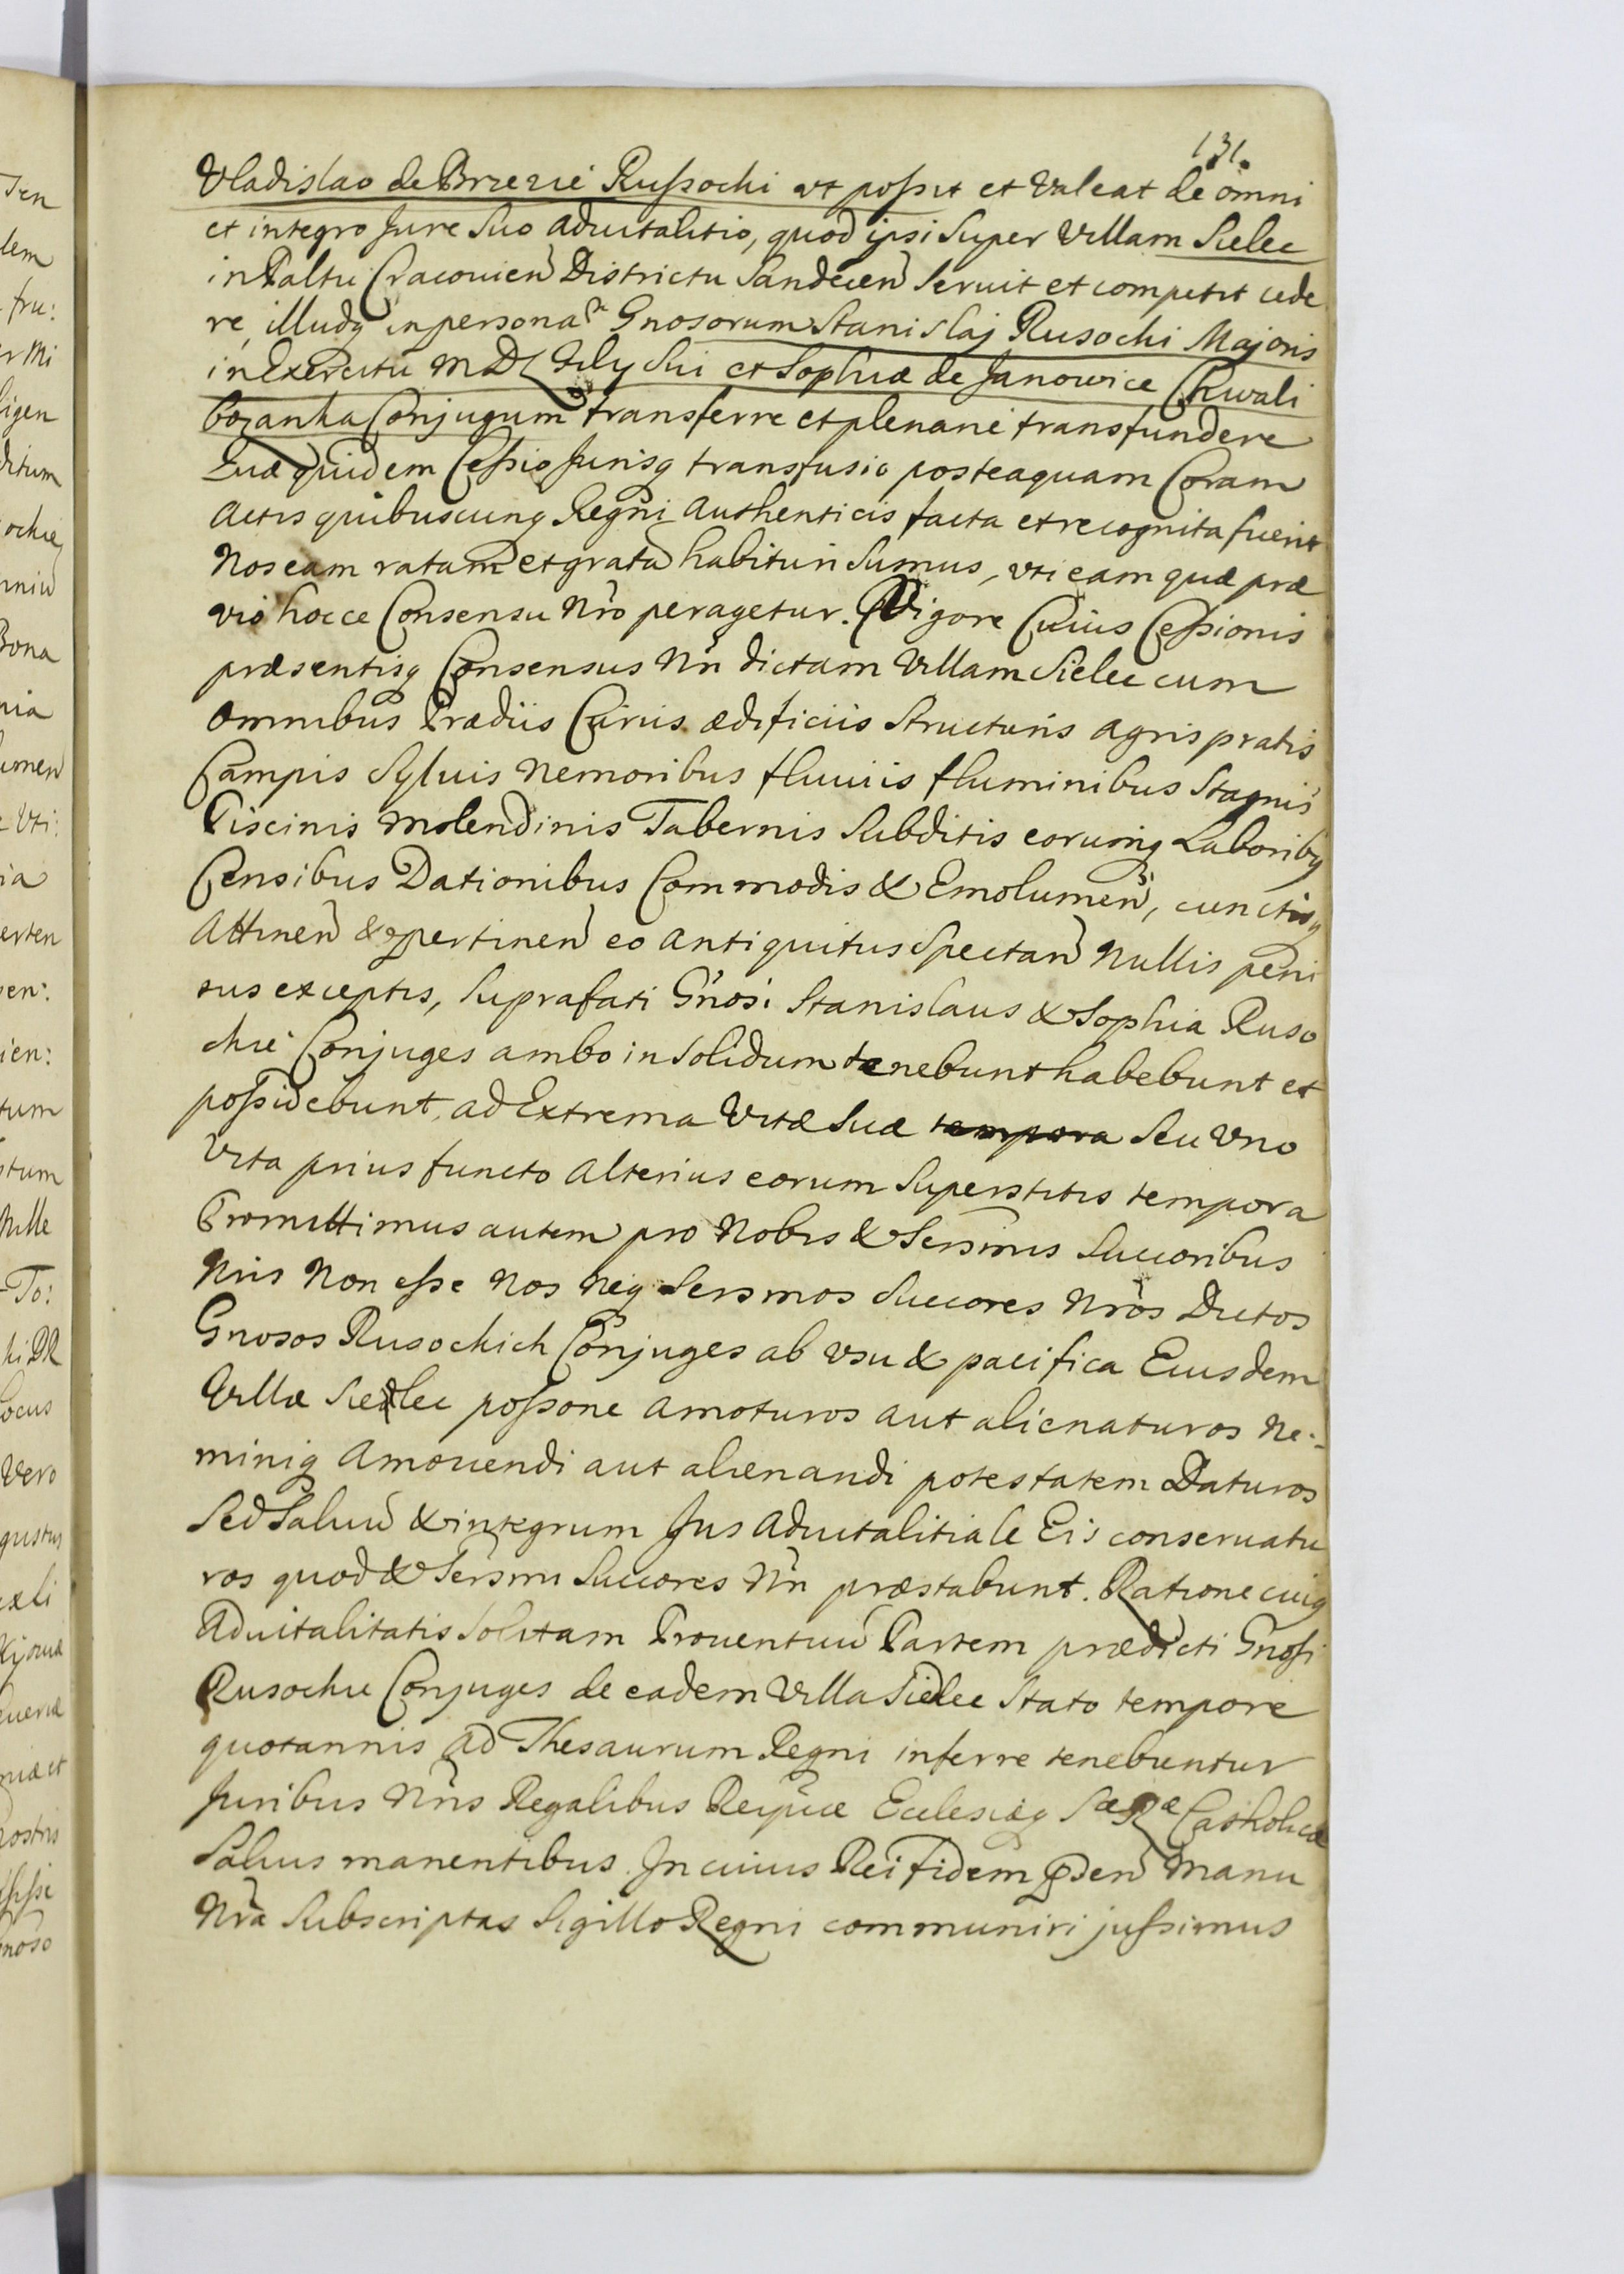 131.
Vladislao de Brzezie Russochi vt possit et Valeat de omni
et integro Jure Suo aduitalitio, quod ipsi Super Villam Sielec
in Paltu Cracouien Districtu Sandecen Seruit et competit cede
re, illudq in personas Gnosorum Stanislaj Rusochi Majoris
in Exercitu M D L Filij Sui et Sophiæ de Janowice Chwali
bozanka Conjugum transferre et plenarie transfundere
Quæ quidem Cessio Jurisq transfusio posteaquam Coram
Actis quibuscunq Regni Authenticis facta et recognita fuerit
Nos eam ratam et grata habituri Sumus, vti eam quæ præ
vio hocce Consensu Nro peragetur. Vigore Cuius Cessionis
præsentisq Consensus Nri dictam Villam Sielec cum
omnibus Prædiis Curiis ædificiis Structuris agris pratis
Campis Syluis Nemoribus fluuiis fluminibus Stagnis
Piscinis molendinis Tabernis Subditis eorumq Laboribq
Censibus Dationibus Commodis & Emolumen, cunctisq
Attinen & ptinen eo antiquitus Spectan Nullis peni
tus exceptis, Suprafati Gnosi Stanislaus & Sophia Ruso
chie Conjuges ambo in Solidum tenebunt habebunt et
possidebunt, ad Extrema Vitæ Suæ tempora Seu Vno
Vita prius functo alterius eorum Superstitis tempora
Promittimus autem pro Nobis & Sersmis Succoribus
Nris Non esse Nos Neq Sersmos Succores Nros Dictos
Gnosos Rusochich Conjuges ab vsu & pacifica Eiusdem
Villæ Sielec possone amoturos aut alienaturos Ne-
miniq amouendi aut alienandi potestatem Daturos
Sed Saluu & integrum Jus aduitalitiale Eis conseruatu
ros quod & Sersmi Succores Nri præstabunt. Ratione cuiq
aduitalitatis Solitam Prouentuu Partem prædicti Gnosi
Rusochie Conjuges de eadem Villa Sielec Stato tempore
quotannis ad Thesaurum Regni inferre tenebuntur
Juribus Nris Regalibus Reipcæ Ecclesiæq Catholicæ
Saluis manentibus. In cuius Rei fidem psen manu
Nra Subscriptas Sigillo Regni communiri jussimus